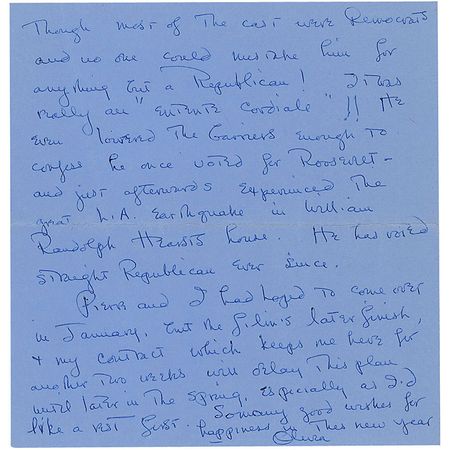 Though most of the cast were Democrats
and no one could mistake him for
anything but a Republican! It was
really an "Entente Cordiale"!! He
even lowered the barriers enough to
confess he once voted for Roosevelt -
and just afterwards experienced the
great L.A. Earthquake in William
Randolph Hearsts house. He has voted
straight Republican ever since.
Pierre and I had hoped to come over
in January, but the film's later finish,
+ my contract which keeps me here for
another two weeks will delay this plan
until later in the Spring, especially as I'd
like a rest first. So many good wishes for
happiness in this new year